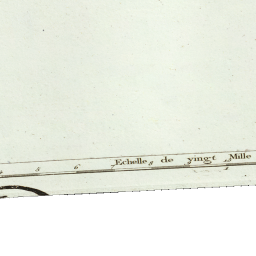 Echelle de vingt Mille
5 6 8